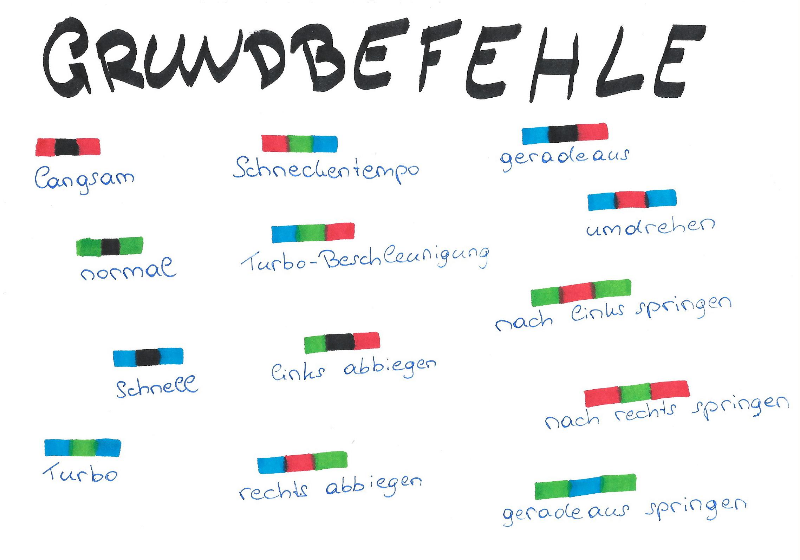 GRUNDBEFEHLE
langsam
normal
Schnell
Turbo
Schneckentempo
Turbo-Beschleunigung
links abbiegen
rechts abbiegen
geradeaus
umdrehen
nach links springen
nach rechts springen
geradeaus springen